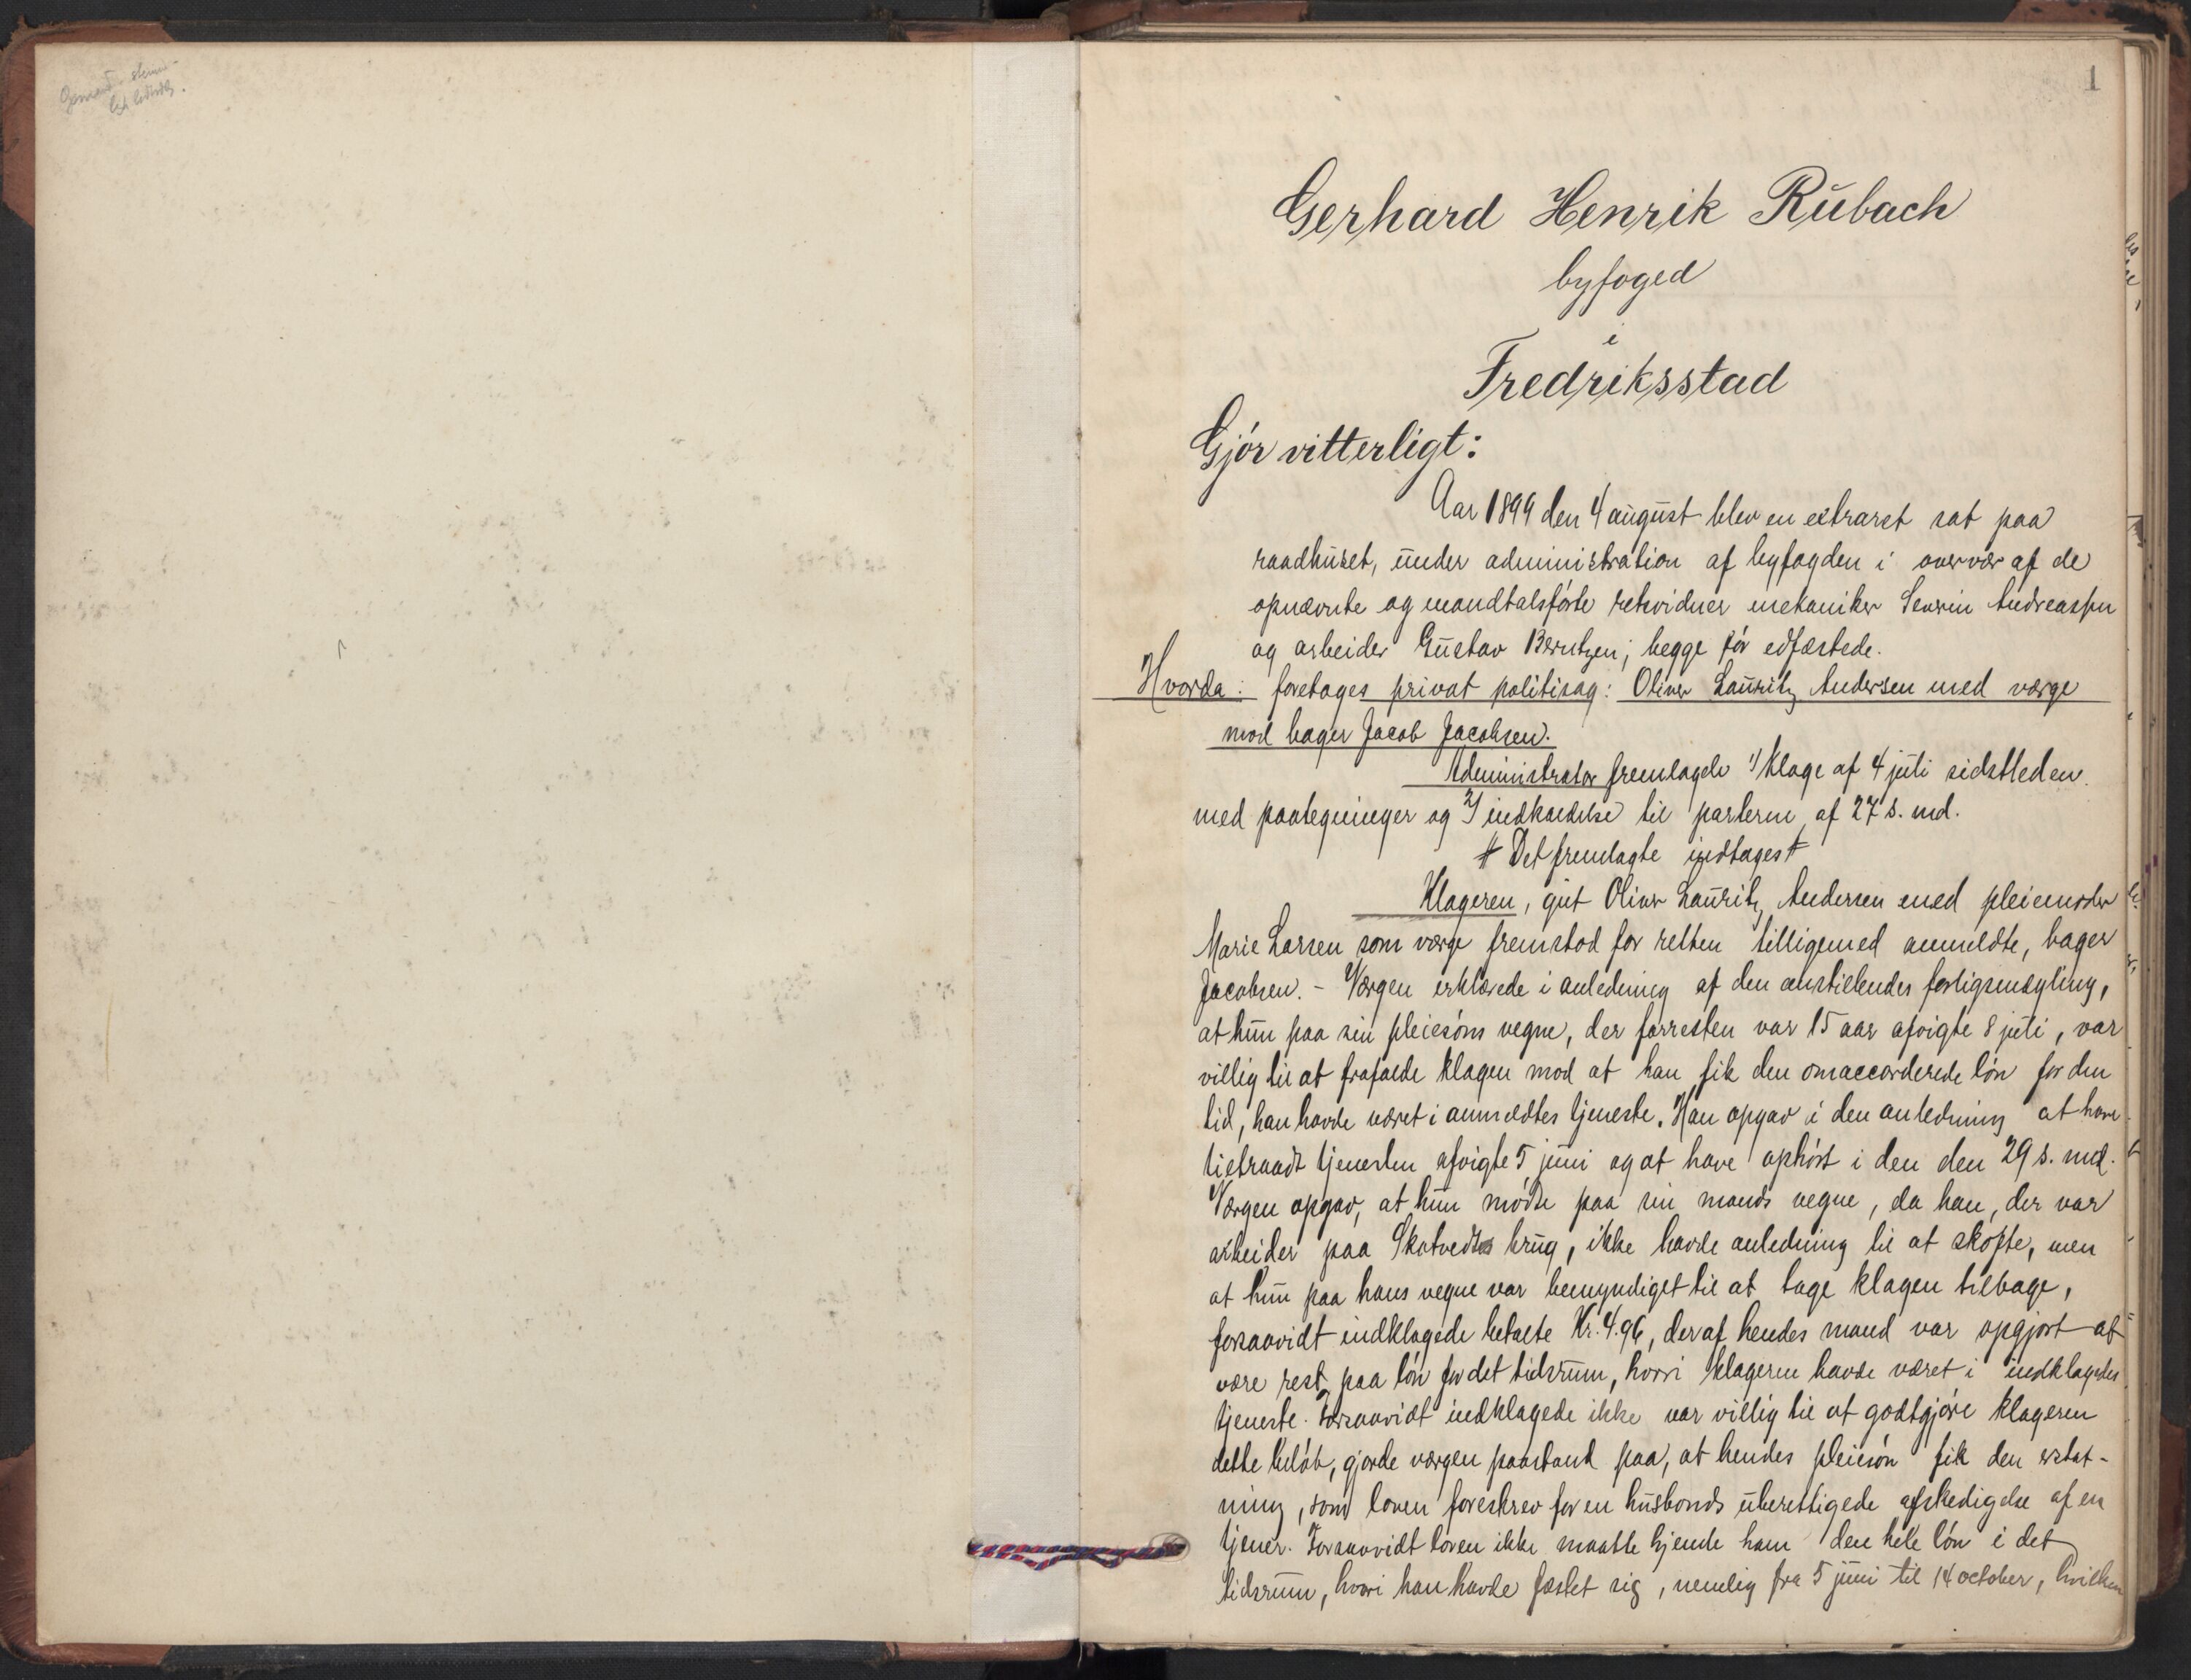 1
Gerhard Henrik Rubach
byfoged
i
Fredriksstad
Gjór vitterligt:
Aar 1899 den 4 august blev en extraret sat paa
raadhuset, under administration af byfogden i overvær af de
opnævnte og mandtalsførte retsvidner mekaniker Severin Andreassen
og arbeider Gustav Berntzen; begge før edfæstede.
Hvorda: foretoges privat politisag: Oliver Lauritz Andersen med værge
mod bager Jacob Jacobsen.
Administrator fremlagde 1/ Klage af 4 juli sidstleden
med paategninger og 2/ indkaldelse til parterne af 27 s. md.
# Det fremlagte indtages #
Klageren, gut Oliver Lauritz Andersen med pleiemoder
Marie Larsen som værge fremstod for retten tilligemed anmeldte, bager
Jacobsen. - Værgen erklærede i anledning af den anstillendes forligsmægling,
at hun paa sin pleiesøns vegne, der forresten var 15 aar afvigte 8 juli, var
villig til at frafalde klagen mod at han fik den omaccorderede løn for den
tid, han havde været i anmeldtes tjeneste. Han opgav i den anledning at have
tiltraadt tjenesten afvigte 5 juni og at have ophørt i den den 29 s. md.
Værgen opgav, at hun mødte paa sin mands vegne, da han, der var
arbeider paa Skotvedts brug, ikke havde anledning til at skofte, men
at hun paa hans vegne var bemyndiget til at tage klagen tilbage,
forsaavidt indklagede betalte Kr. 4.96, der af hendes mand var opgjort at
være rest paa løn for det tidsrum, hvori klageren havde været i indklagedes
tjeneste. Forsaavidt indklagede ikke var villig til at godtgjøre klageren
dette beløb, gjorde værgen paastand paa, at hendes pleiesøn fik den erstat-
ning, som loven foreskrev for en husbonds uberettigede afskedigelse af en
tjener. Forsaavidt loven ikke maatte kjende ham den hele løn i det
tidsrum, hvori han havde fæstet sig, nemlig fra 5 juni til 14 october, hvilken